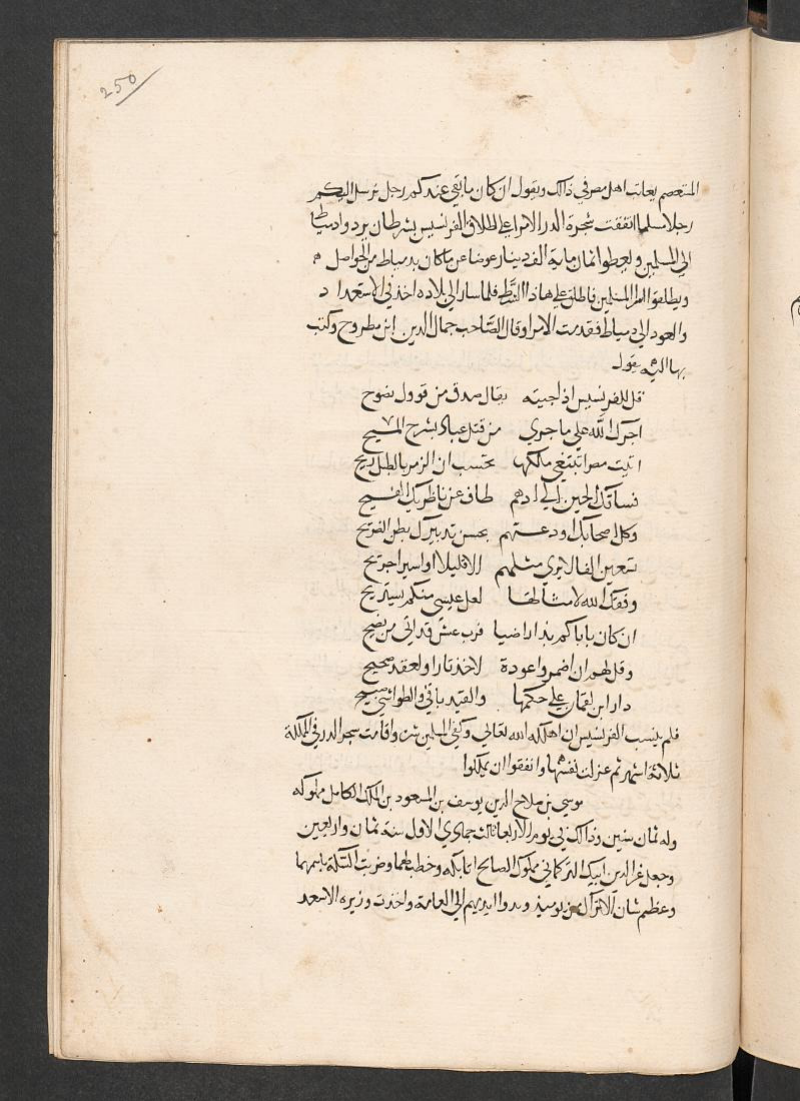 250
المتعصم يعاتب اهل مصر في ذالك ويقول ان كان ما بقي عندكم رجل نرسل اليكم
رجلا سلما اتفقت شجرة الدر الامرا علي اطلاق الفرنسيس بشرط ان يردوا دمياط
الي المسلمين ولعطوا ثمان ماية الف دينار عوضا عن ما كان بدمياط من الحواصل
ويطلقوا المسلمين فاطلق علي هاذا الشرط فلما سار الي بلاده اخذ في الاستعداد
والعود الي دمياط فقدمت الامرا وقال الصاحب جمال الدين ابن مطروح وكتب
بها اليه يقول
قل للفرنسيس اذا جيته مقال صدق من قوول نصوح
اجرك الله علي ما جري من قتل عباد يشرح المسيح
اتيت مصرا تبتغي ملكها تحسب ان الزمر بالطبل ريح
فساقك الحين الي ادهم طاف عن ناظريك الفسيح
وكل اصحابك اودعتهم بحسن تدبيرك بطن الضريح
سبعين الفا لا يري مثلهم الا قليلا او اسير اجريح
وفقك الله لامثالها لعل عيسي منكم يستريح
ان كان باباكم بذا راضيا فرب عش قد اتي من نصيح
وقل لهم ان اضمروا عودة لاخذ تار او لعقد صحيح
دار ابن لقمان علي حكمها والقيد باقي والطواشي صبيح
فلم ينسب الفرنسيس ان اهلكه الله تعالي وكفي المسلمين شره واقامت شجر الدر في المملكة
ثلاثة اشهر ثم عزلت نفسها واتفقوا ان يملكوا
موسي بن صلاح الدين يوسف بن المسعود بن الملك الكامل مملوكه
وله ثمان سنين وذالك في يوم الاربعا ثالث جمادي الاول سنة ثمان واربعين
وجعل عز الدين ايبك التركماني مملوك الصالح اتابكه وخطب لهما وضربت السكة باسمهما
وعظم شان الاتراك من يوميذ ومدوا ايديهم الي العامة واخذت وزيره الاسعد